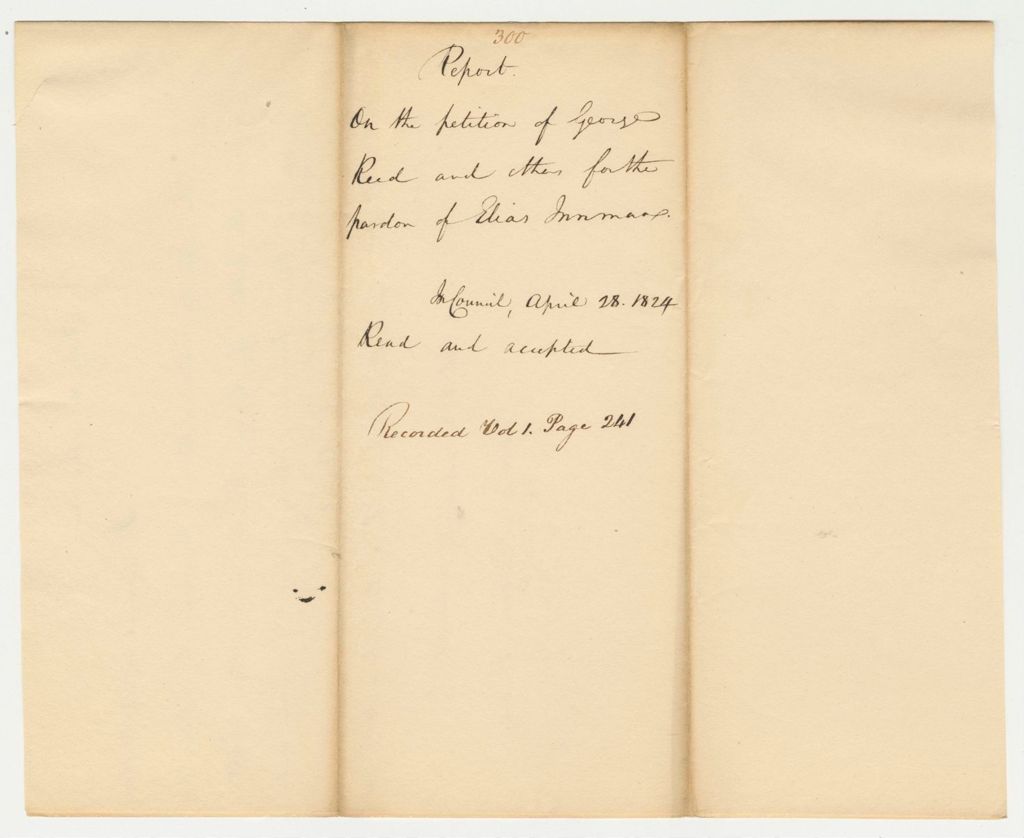 300
Report.
On the petition of George
Reed and others for the
pardon of Elias Innman.
In Council, April 28. 1824
Read and accepted
Recorded Vol 1. Page 241